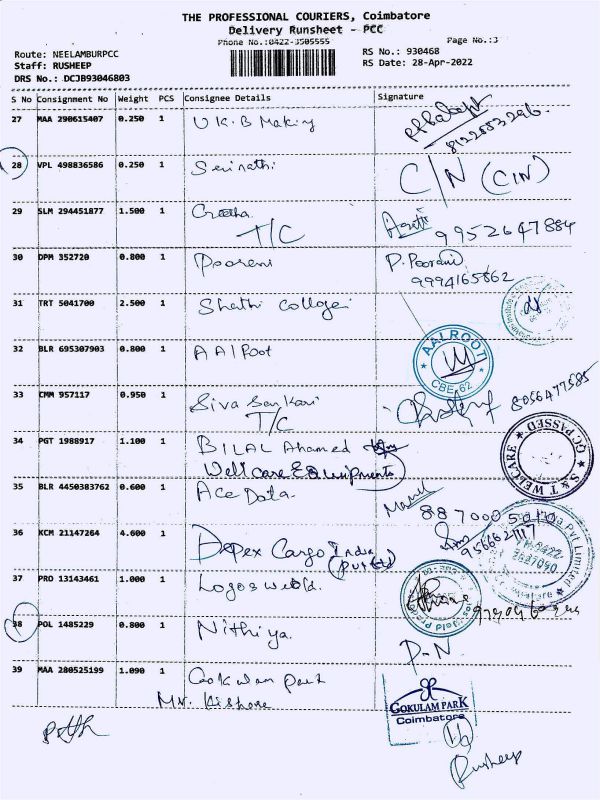 THE PROFESSIONAL COURIERS, Coimbatore
Delivery Runsheet - PCC
Phone No.:0422-3505555 Page No.:3
Route: NEELAMBURPCC RS No.: 930468
Staff: RUSHEEP RS Date: 28-Apr-2022
DRS No.: DCJB93046803
S No Consignment No Weight PCS Consignee Details Signature
27 MAA 290615407 0.250 1 U K.B Making
28 VPL 498836586 0.250 1 C/N (CIN)
29 SLM 294451877 1.500 1 Geetha 9952647884
T/C
30 DPM 352720 0.800 1 Poorani P. Poorani
9994165862
31 TRT 5041700 2.500 1 Shathi College
32 BLR 695307903 0.800 1 A A l Root AALROOT
CBE-62
33 CMM 957117 0.950 1 Siva Sankari 8056477585
T/C
34 PGT 1988917 1.100 1 BILAL Ahamed GC PASSED
Well care Equipments S & T WELCARE
35 BLR 4450383762 0.600 1 Ace Data.
36 KCM 21147264 4.600 1 Cargo India Pvt Limited
37 PRO 13143461 1.000 1 Logos
38 POL 1485229 0.800 1 Nithiya. D-N.
39 MAA 280525199 1.090 1 Gokulam park GOKULAM PARK
Mr. Kishore Coimbatore
Rusheep